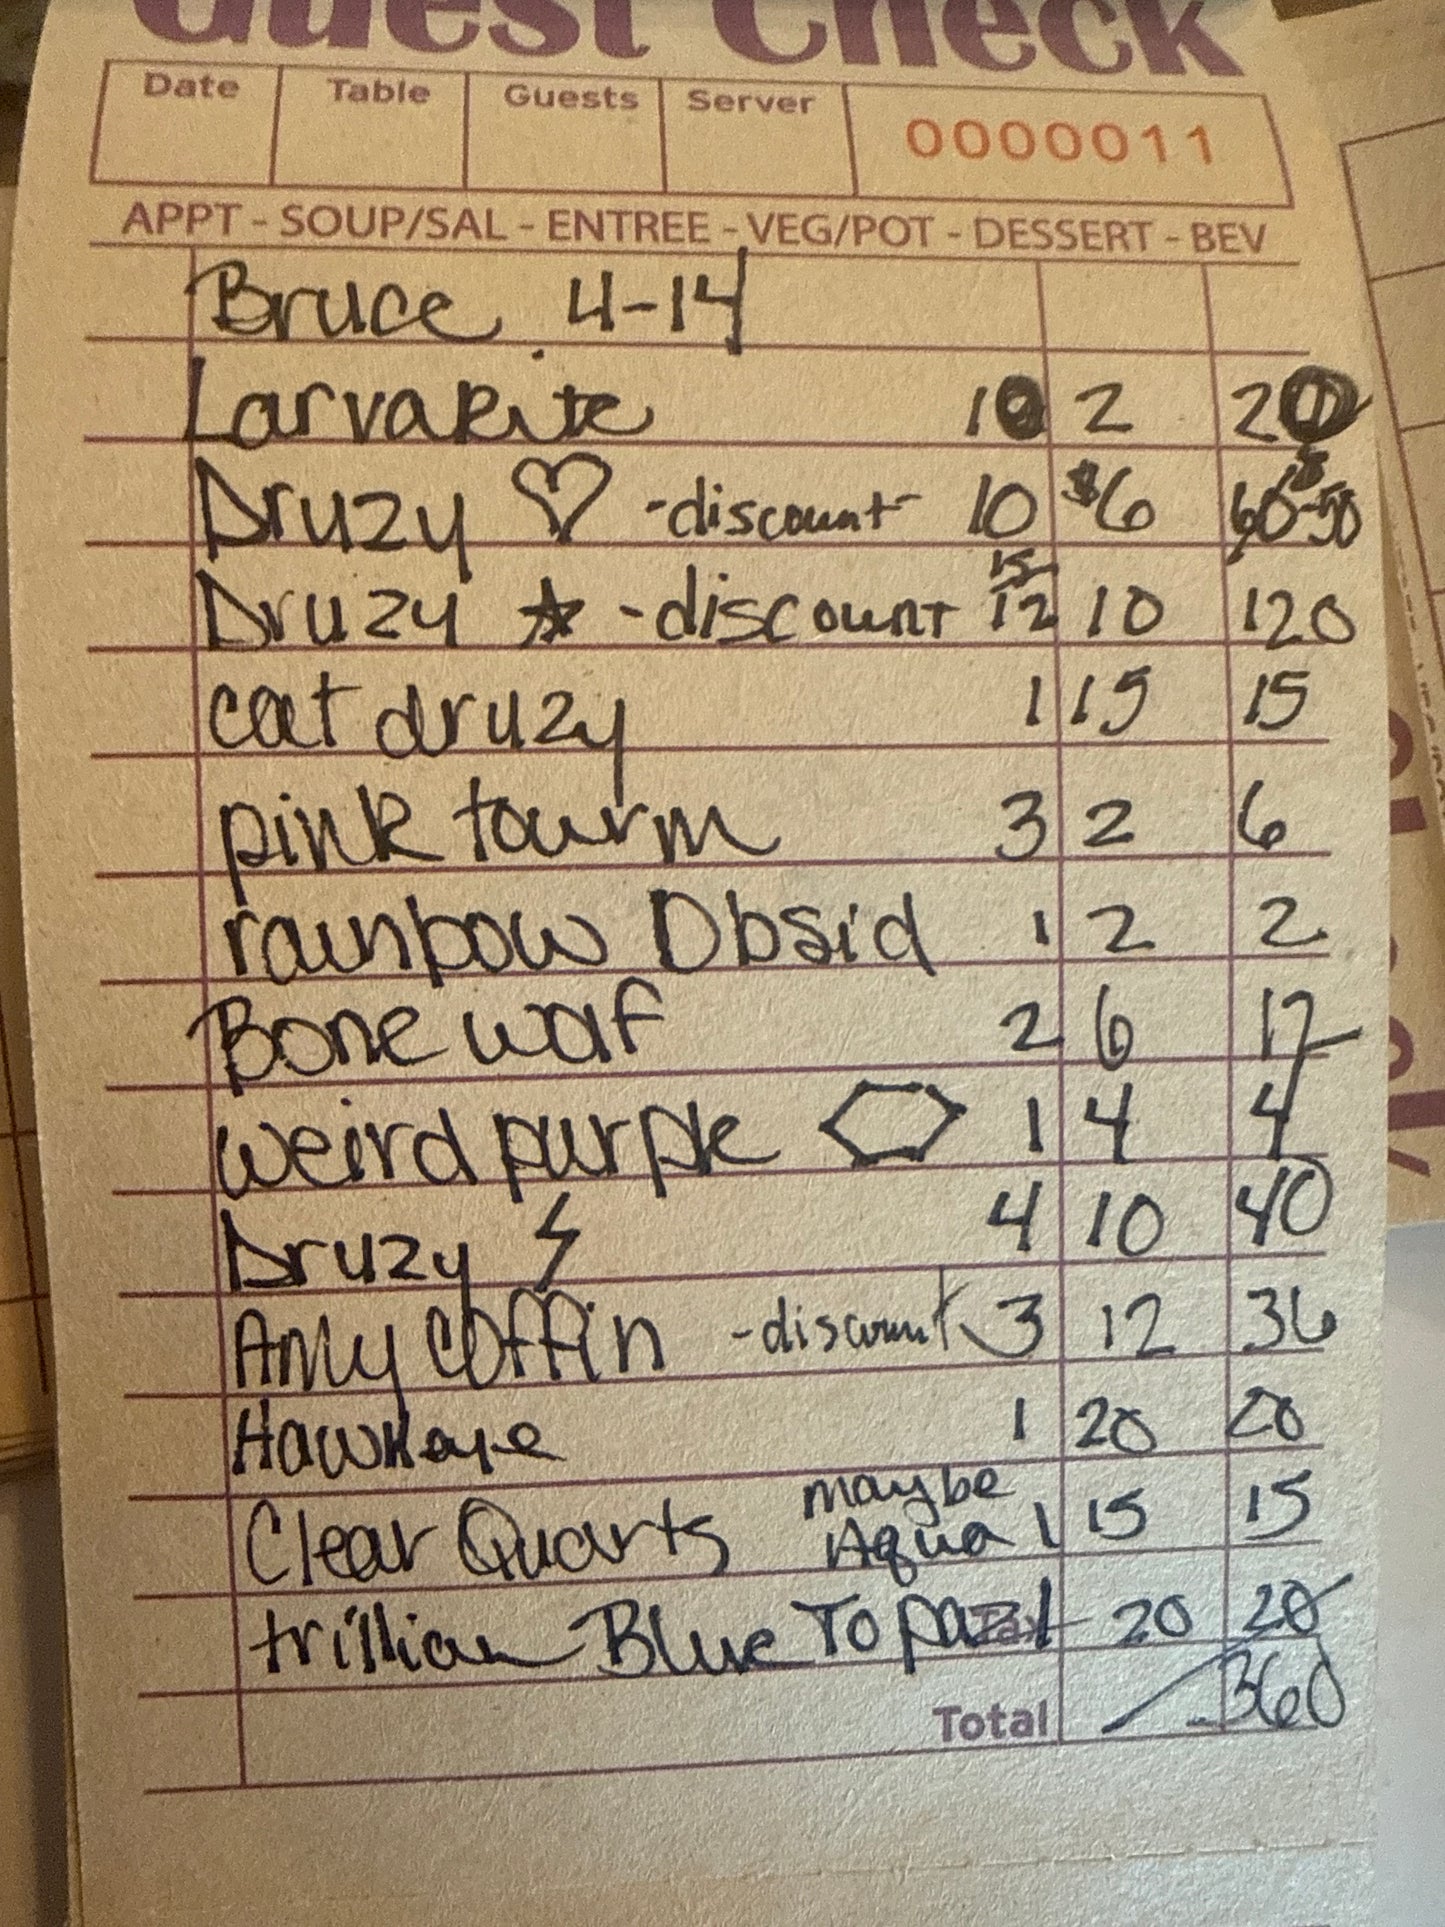 Guest Check
Date Table Guests Server 0000011
APPT - SOUP/SAL - ENTREE - VEG/POT - DESSERT - BEV
Bruce 4-14
Larvakite 10 2 20
Druzy ♡ -discount- 10 $6 60-50
Druzy ☆ -discount 12 10 120
cat druzy 1 15 15
pink tourm 3 2 6
rainbow Obsid 1 2 2
Bone waf 2 6 12
weird purple 1 4 4
Druzy 4 10 40
Amy Coffin -discount 3 12 36
Hawkeye 1 20 20
Clear Quarts maybe Aqua 1 15 15
trillian Blue Topaz 1 20 20
Tax
Total 360